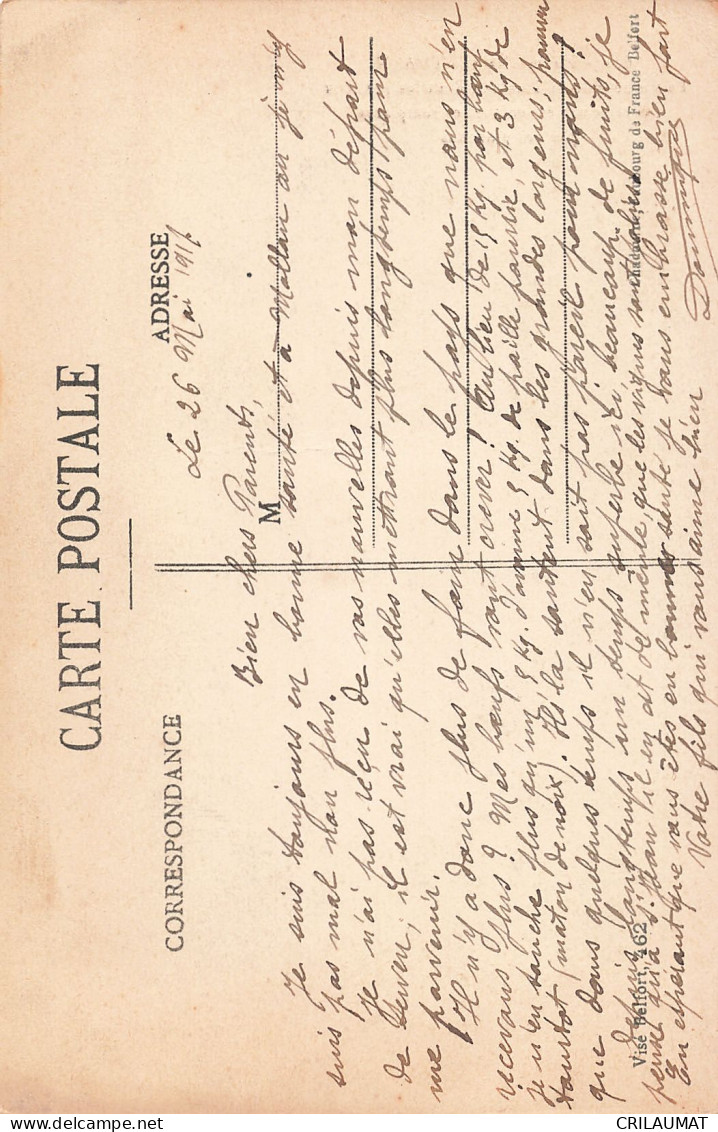 CARTE POSTALE
CORRESPONDANCE
ADRESSE
M
Le 26 Mai 1917
Bien chers Parents,
Je suis toujours en bonne santé et à Mollau où je m'y
suis pas mal non plus.
Je n'ai pas reçu de vos nouvelles depuis mon départ
de Serven; il est vrai qu'elles mettront plus longtemps pour
me parvenir.
Il n'y a donc plus de foin dans le pays que nous n'en
recevons plus? Mes bœufs vont crever! Au lieu de 15 kg. par bœuf
je n'en touche plus qu'un 2 kg. d'avoine 2 kg. de paille pourrie, et 3 kg de
tourtot (maton de noix). Ils la sautent dans les grandes largeurs; pourvu
que dans quelques temps il n'en soit pas pareil pour nous!
Depuis longtemps un temps superbe ici, beaucoup de fruits, je
pense qu'à St Jean il en est de même, que les vignes sont belles.
En espérant que vous êtes en bonne santé je vous embrasse bien fort
Votre fils qui vous aime bien
Visé Belfort, 462
Faubourg de France Belfort
CRILAUMAT